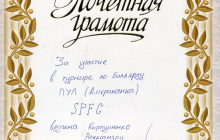 Почетная
грамота
За участие
в турнире по бильярду
ПУЛ (Американка)
SPFG
вручена
Александру